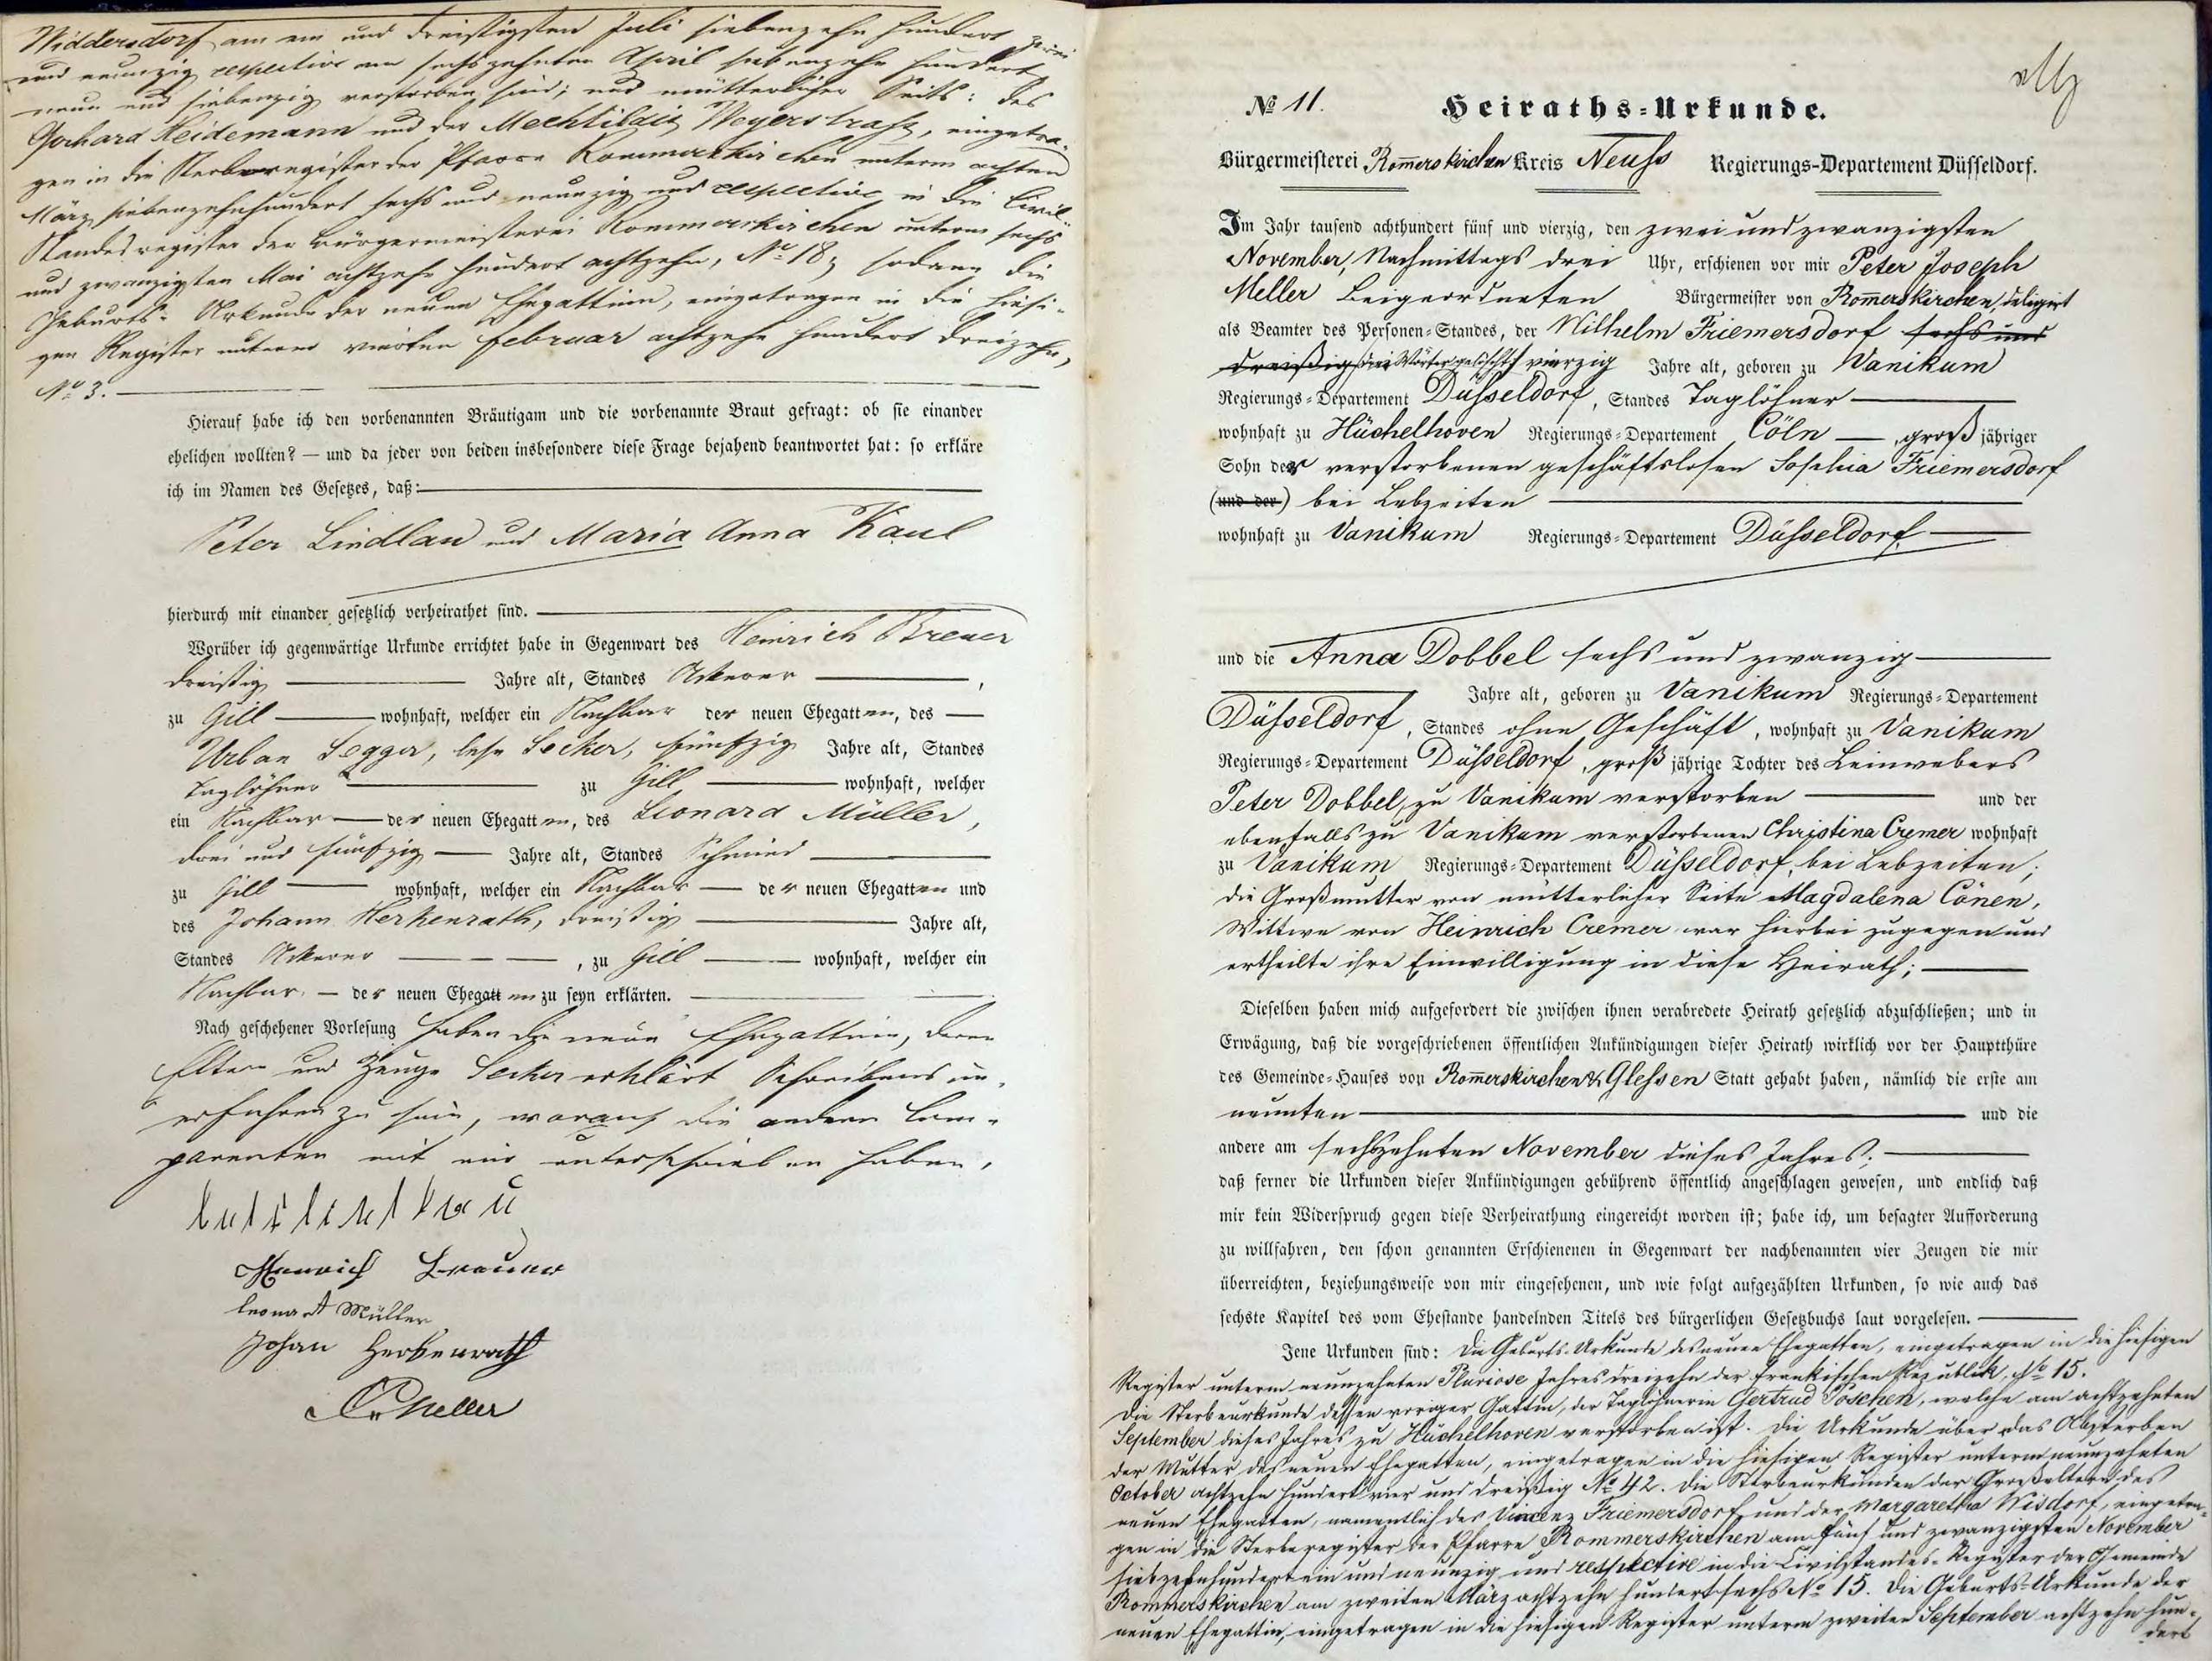 Widdersdorf am ein und dreißigsten Juli siebenzehn hundert zwei
und neunzig respective am sechszehnten April siebenzehn hundert
neun und siebenzig verstorben sind; und mütterlicher Seits: des
Gerhard Heidemann und der Mechtildis Weyerstraß, eingetra-
gen in die Sterberegister der Pfarre Rommerskirchen unterm achten
März siebenzehnhundert sechs und neunzig und respective in die Civil-
Standesregister der Bürgermeisterei Rommerskirchen unterm sechs
und zwanzigsten Mai achtzehn hundert achtzehn, No 18; sodann die
Geburts-Urkunde der neuen Ehegattinn, eingetragen in die hiesi-
gen Register unterm vierten Februar achtzehn hundert dreizehn,
No 3.
Hierauf habe ich den vorbenannten Bräutigam und die vorbenannte Braut gefragt: ob sie einander
ehelichen wollten? — und da jeder von beiden insbesondere diese Frage bejahend beantwortet hat: so erkläre
ich im Namen des Gesetzes, daß:
Peter Lindlau und Maria Anna Kaul
hierdurch mit einander gesetzlich verheirathet sind.
Worüber ich gegenwärtige Urkunde errichtet habe in Gegenwart des Heinrich Breuer
dreißig Jahre alt, Standes Ackerer,
zu Gill wohnhaft, welcher ein Nachbar der neuen Ehegatten, des
Urban Segger, lese Secker, fünfzig Jahre alt, Standes
Taglöhner zu Gill wohnhaft, welcher
ein Nachbar der neuen Ehegatten, des Leonard Müller,
drei und fünfzig Jahre alt, Standes Schmied
zu Gill wohnhaft, welcher ein Nachbar der neuen Ehegatten und
des Johann Herkenrath, dreißig Jahre alt,
Standes Ackerer, zu Gill wohnhaft, welcher ein
Nachbar der neuen Ehegatten zu seyn erklärten.
Nach geschehener Vorlesung haben die neue Ehegattinn, deren
Eltern und Zeuge Secker erklärt Schreibens un-
erfahren zu sein, worauf die andern Com-
parenten mit mir unterschrieben haben.
Heinrich Breuer
leonard Müller
Johan Herkenrath
Meller
No 11. Heiraths-Urkunde.
Bürgermeisterei Rom̅erskirchen Kreis Neuss Regierungs-Departement Düsseldorf.
Im Jahr tausend achthundert fünf und vierzig, den zwei und zwanzigsten
November, Nachmittags drei Uhr, erschienen vor mir Peter Joseph
Meller Beigeordneten Bürgermeister von Rom̅erskirchen, delegirt
als Beamter des Personen-Standes, der Wilhelm Friemersdorf sechs und
dreißig (drei Wörter gelöscht) vierzig Jahre alt, geboren zu Vanikum
Regierungs-Departement Düsseldorf, Standes Taglöhner
wohnhaft zu Hüchelhoven Regierungs-Departement Cöln, großjähriger
Sohn der verstorbenen geschäftslosen Sophia Friemersdorf
(und der) bei Lebzeiten
wohnhaft zu Vanikum Regierungs-Departement Düsseldorf
und die Anna Dobbel sechs und zwanzig
Jahre alt, geboren zu Vanikum Regierungs-Departement
Düsseldorf, Standes ohne Geschäft, wohnhaft zu Vanikum
Regierungs-Departement Düsseldorf, großjährige Tochter des Leinwebers
Peter Dobbel, zu Vanikum verstorben und der
ebenfalls zu Vanikum verstorbenen Christina Cremer wohnhaft
zu Vanikum Regierungs-Departement Düsseldorf, bei Lebzeiten;
die Großmutter von mütterlicher Seite Magdalena Cönen,
Wittwe von Heinrich Cremer war hierbei zugegen und
ertheilte ihre Einwilligung in diese Heirath;
Dieselben haben mich aufgefordert die zwischen ihnen verabredete Heirath gesetzlich abzuschließen; und in
Erwägung, daß die vorgeschriebenen öffentlichen Ankündigungen dieser Heirath wirklich vor der Hauptthüre
des Gemeinde-Hauses von Rom̅erskirchen & Glessen Statt gehabt haben, nämlich die erste am
neunten und die
andere am sechszehnten November dieses Jahres;
daß ferner die Urkunden dieser Ankündigungen gebührend öffentlich angeschlagen gewesen, und endlich daß
mir kein Widerspruch gegen diese Verheirathung eingereicht worden ist; habe ich, um besagter Aufforderung
zu willfahren, den schon genannten Erschienenen in Gegenwart der nachbenannten vier Zeugen die mir
überreichten, beziehungsweise von mir eingesehenen, und wie folgt aufgezählten Urkunden, so wie auch das
sechste Kapitel des vom Ehestande handelnden Titels des bürgerlichen Gesetzbuchs laut vorgelesen.
Jene Urkunden sind: Die Geburts-Urkunde des neuen Ehegatten, eingetragen in die hiesigen
Register unterm neunzehnten Pluviose Jahres dreizehn der frankischen Republik, No 15.
Die Sterbeurkunde dessen voriger Gattin, der Taglöhnerin Gertrud Poschen, welche am achtzehnten
September dieses Jahres zu Hüchelhoven verstorben ist. Die Urkunde über das Absterben
der Mutter des neuen Ehegatten, eingetragen in die hiesigen Register unterm neunzehnten
October achtzehn hundert vier und dreißig No 42. Die Sterbeurkunden der Großeltern des
neuen Ehegatten, namentlich des Vincenz Friemersdorf und der Margaretha Wisdorf, eingetra-
gen in die Sterberegister der Pfarre Rommerskirchen am fünf und zwanzigsten November
siebzehnhundert ein und neunzig und respective in die Civilstandes-Register der Gemeinde
Rommerskirchen am zweiten März achtzehn hundert sechs No 15. Die Geburts-Urkunde der
neuen Ehegattin, eingetragen in die hiesigen Register unterm zweiten September achtzehn hun-
dert